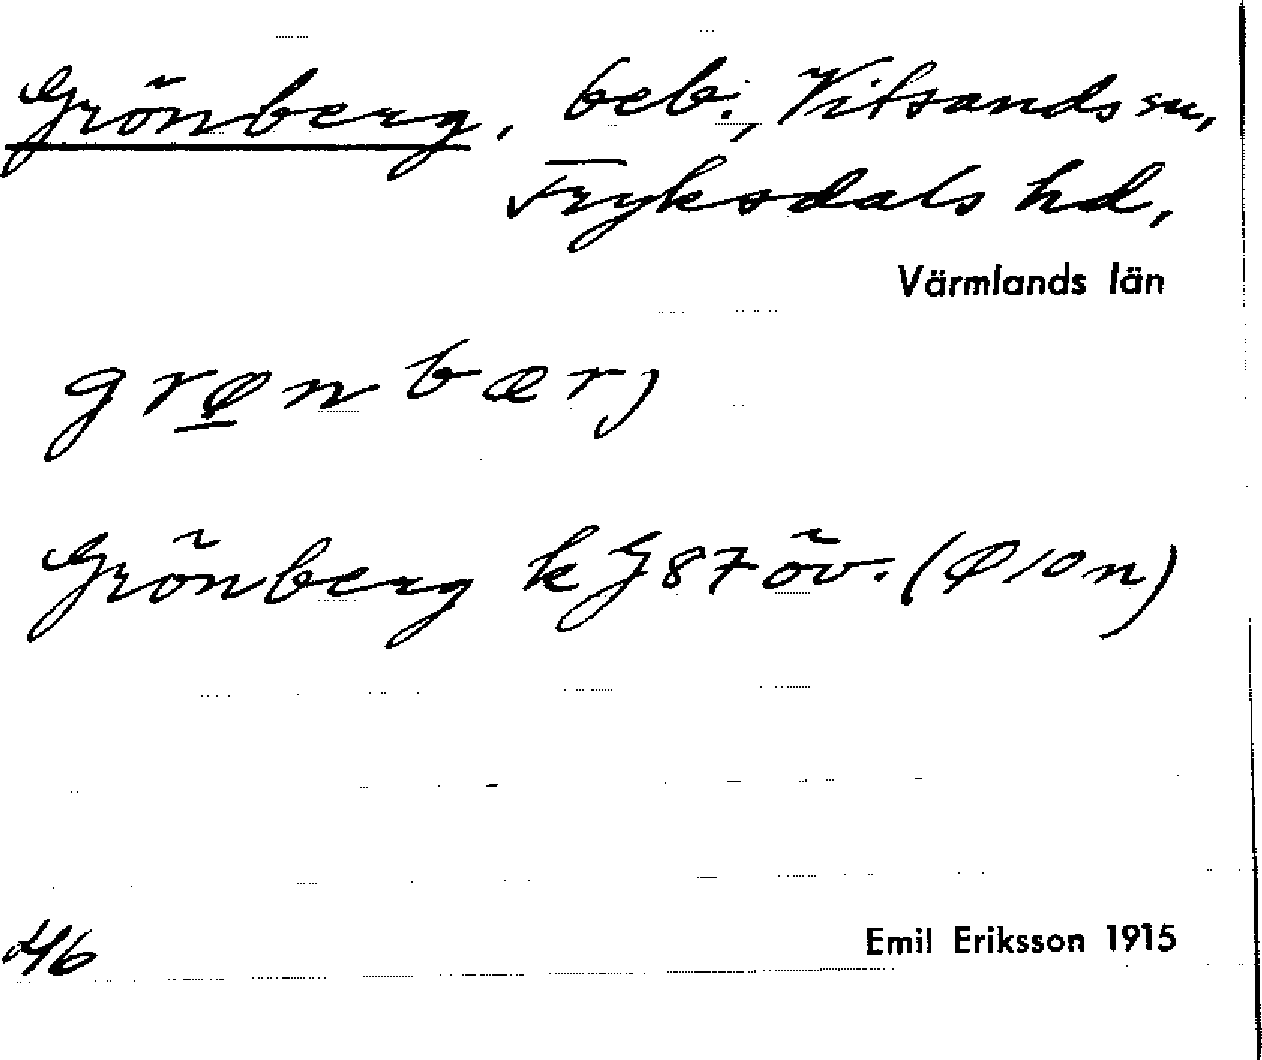 Grönberg, beb., Vitsands sn,
Fryksdals hd,
Värmlands län
grønbærj
Grönberg k J 87 öv. (Ø 10 n)
46
Emil Eriksson 1915